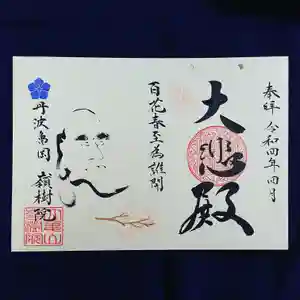 奉拝 令和四年四月
大悲殿
百花春至為誰開
丹波亀岡 嶺樹院